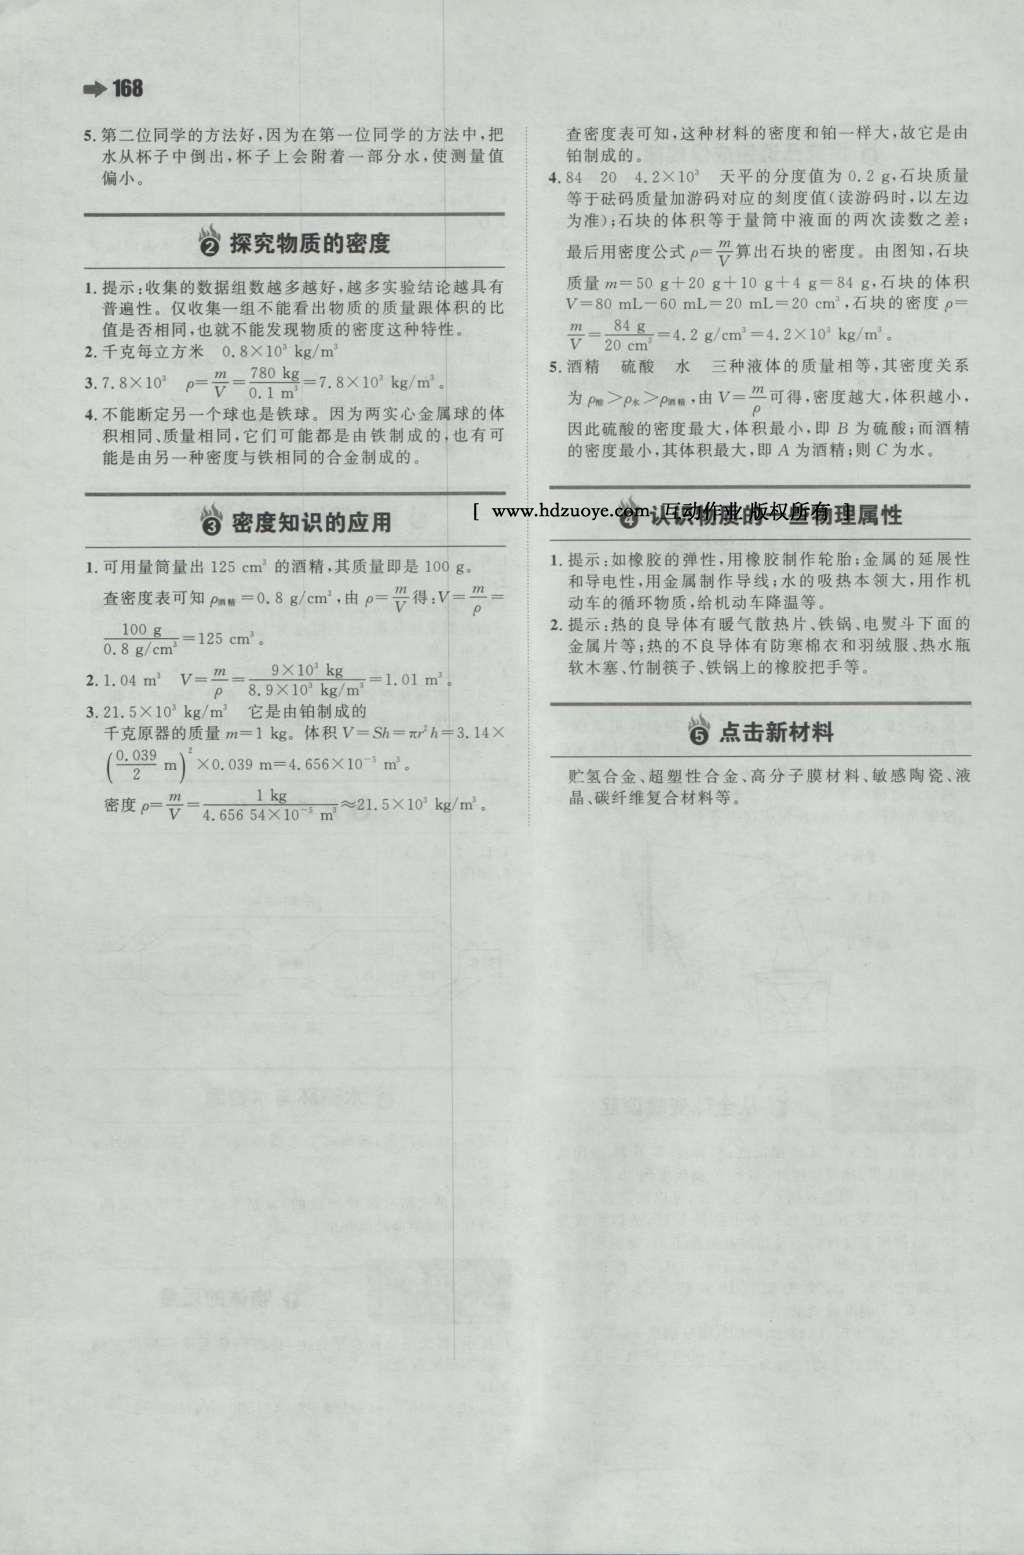 168
5. 第二位同学的方法好,因为在第一位同学的方法中,把
水从杯子中倒出,杯子上会附着一部分水,使测量值
偏小。
2 探究物质的密度
1. 提示:收集的数据组数越多越好,越多实验结论越具有
普遍性。仅收集一组不能看出物质的质量跟体积的比
值是否相同,也就不能发现物质的密度这种特性。
2. 千克每立方米 0.8×10³ kg/m³
3. 7.8×10³ ρ=m/V=780 kg/0.1 m³=7.8×10³ kg/m³。
4. 不能断定另一个球也是铁球。因为两实心金属球的体
积相同、质量相同,它们可能都是由铁制成的,也有可
能是由另一种密度与铁相同的合金制成的。
3 密度知识的应用
1. 可用量筒量出 125 cm³ 的酒精,其质量即是 100 g。
查密度表可知 ρ酒精=0.8 g/cm³,由 ρ=m/V得:V=m/ρ=
100 g/0.8 g/cm³=125 cm³。
2. 1.04 m³ V=m/ρ=9×10³ kg/8.9×10³ kg/m³=1.01 m³。
3. 21.5×10³ kg/m³ 它是由铂制成的
千克原器的质量 m=1 kg。体积 V=Sh=πr²h=3.14×
(0.039/2 m)²×0.039 m=4.656×10⁻⁵ m³。
密度 ρ=m/V=1 kg/4.656 54×10⁻⁵ m³≈21.5×10³ kg/m³。
查密度表可知,这种材料的密度和铂一样大,故它是由
铂制成的。
4. 84 20 4.2×10³ 天平的分度值为 0.2 g,石块质量
等于砝码质量加游码对应的刻度值(读游码时,以左边
为准);石块的体积等于量筒中液面的两次读数之差;
最后用密度公式 ρ=m/V算出石块的密度。由图知,石块
质量 m=50 g+20 g+10 g+4 g=84 g,石块的体积
V=80 mL-60 mL=20 mL=20 cm³,石块的密度 ρ=
m/V=84 g/20 cm³=4.2 g/cm³=4.2×10³ kg/m³。
5. 酒精 硫酸 水 三种液体的质量相等,其密度关系
为 ρ酸>ρ水>ρ酒精,由 V=m/ρ可得,密度越大,体积越小,
因此硫酸的密度最大,体积最小,即 B 为硫酸;而酒精
的密度最小,其体积最大,即 A 为酒精;则 C 为水。
[ www.hdzuoye.com 互动作业 版权所有 ]
4 认识物质的一些物理属性
1. 提示:如橡胶的弹性,用橡胶制作轮胎;金属的延展性
和导电性,用金属制作导线;水的吸热本领大,用作机
动车的循环物质,给机动车降温等。
2. 提示:热的良导体有暖气散热片、铁锅、电熨斗下面的
金属片等;热的不良导体有防寒棉衣和羽绒服、热水瓶
软木塞、竹制筷子、铁锅上的橡胶把手等。
5 点击新材料
贮氢合金、超塑性合金、高分子膜材料、敏感陶瓷、液
晶、碳纤维复合材料等。